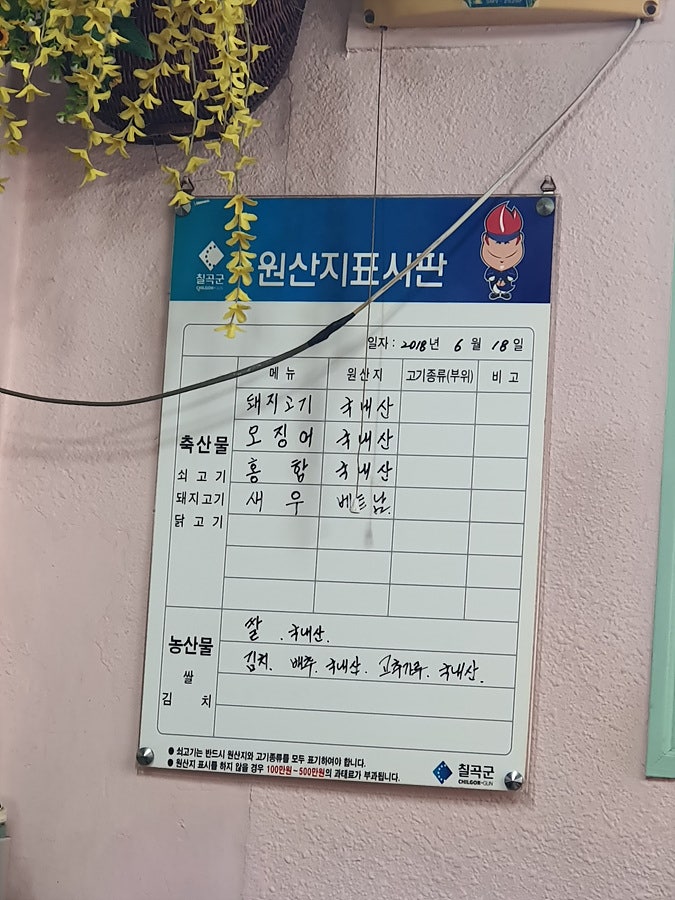 칠곡군
CHILGOK-GUN
원산지표시판
일자 : 2018년 6월 18일
메뉴 원산지 고기종류(부위) 비고
축산물
쇠고기
돼지고기
닭고기
돼지고기 국내산
오징어 국내산
홍합 국내산
새우 베트남.
농산물
쌀
김치
쌀 . 국내산.
김치. 배추. 국내산. 고추가루. 국내산.
● 쇠고기는 반드시 원산지와 고기종류를 모두 표기하여야 합니다.
● 원산지 표시를 하지 않을 경우 100만원~500만원의 과태료가 부과됩니다.
칠곡군
CHILGOK-GUN